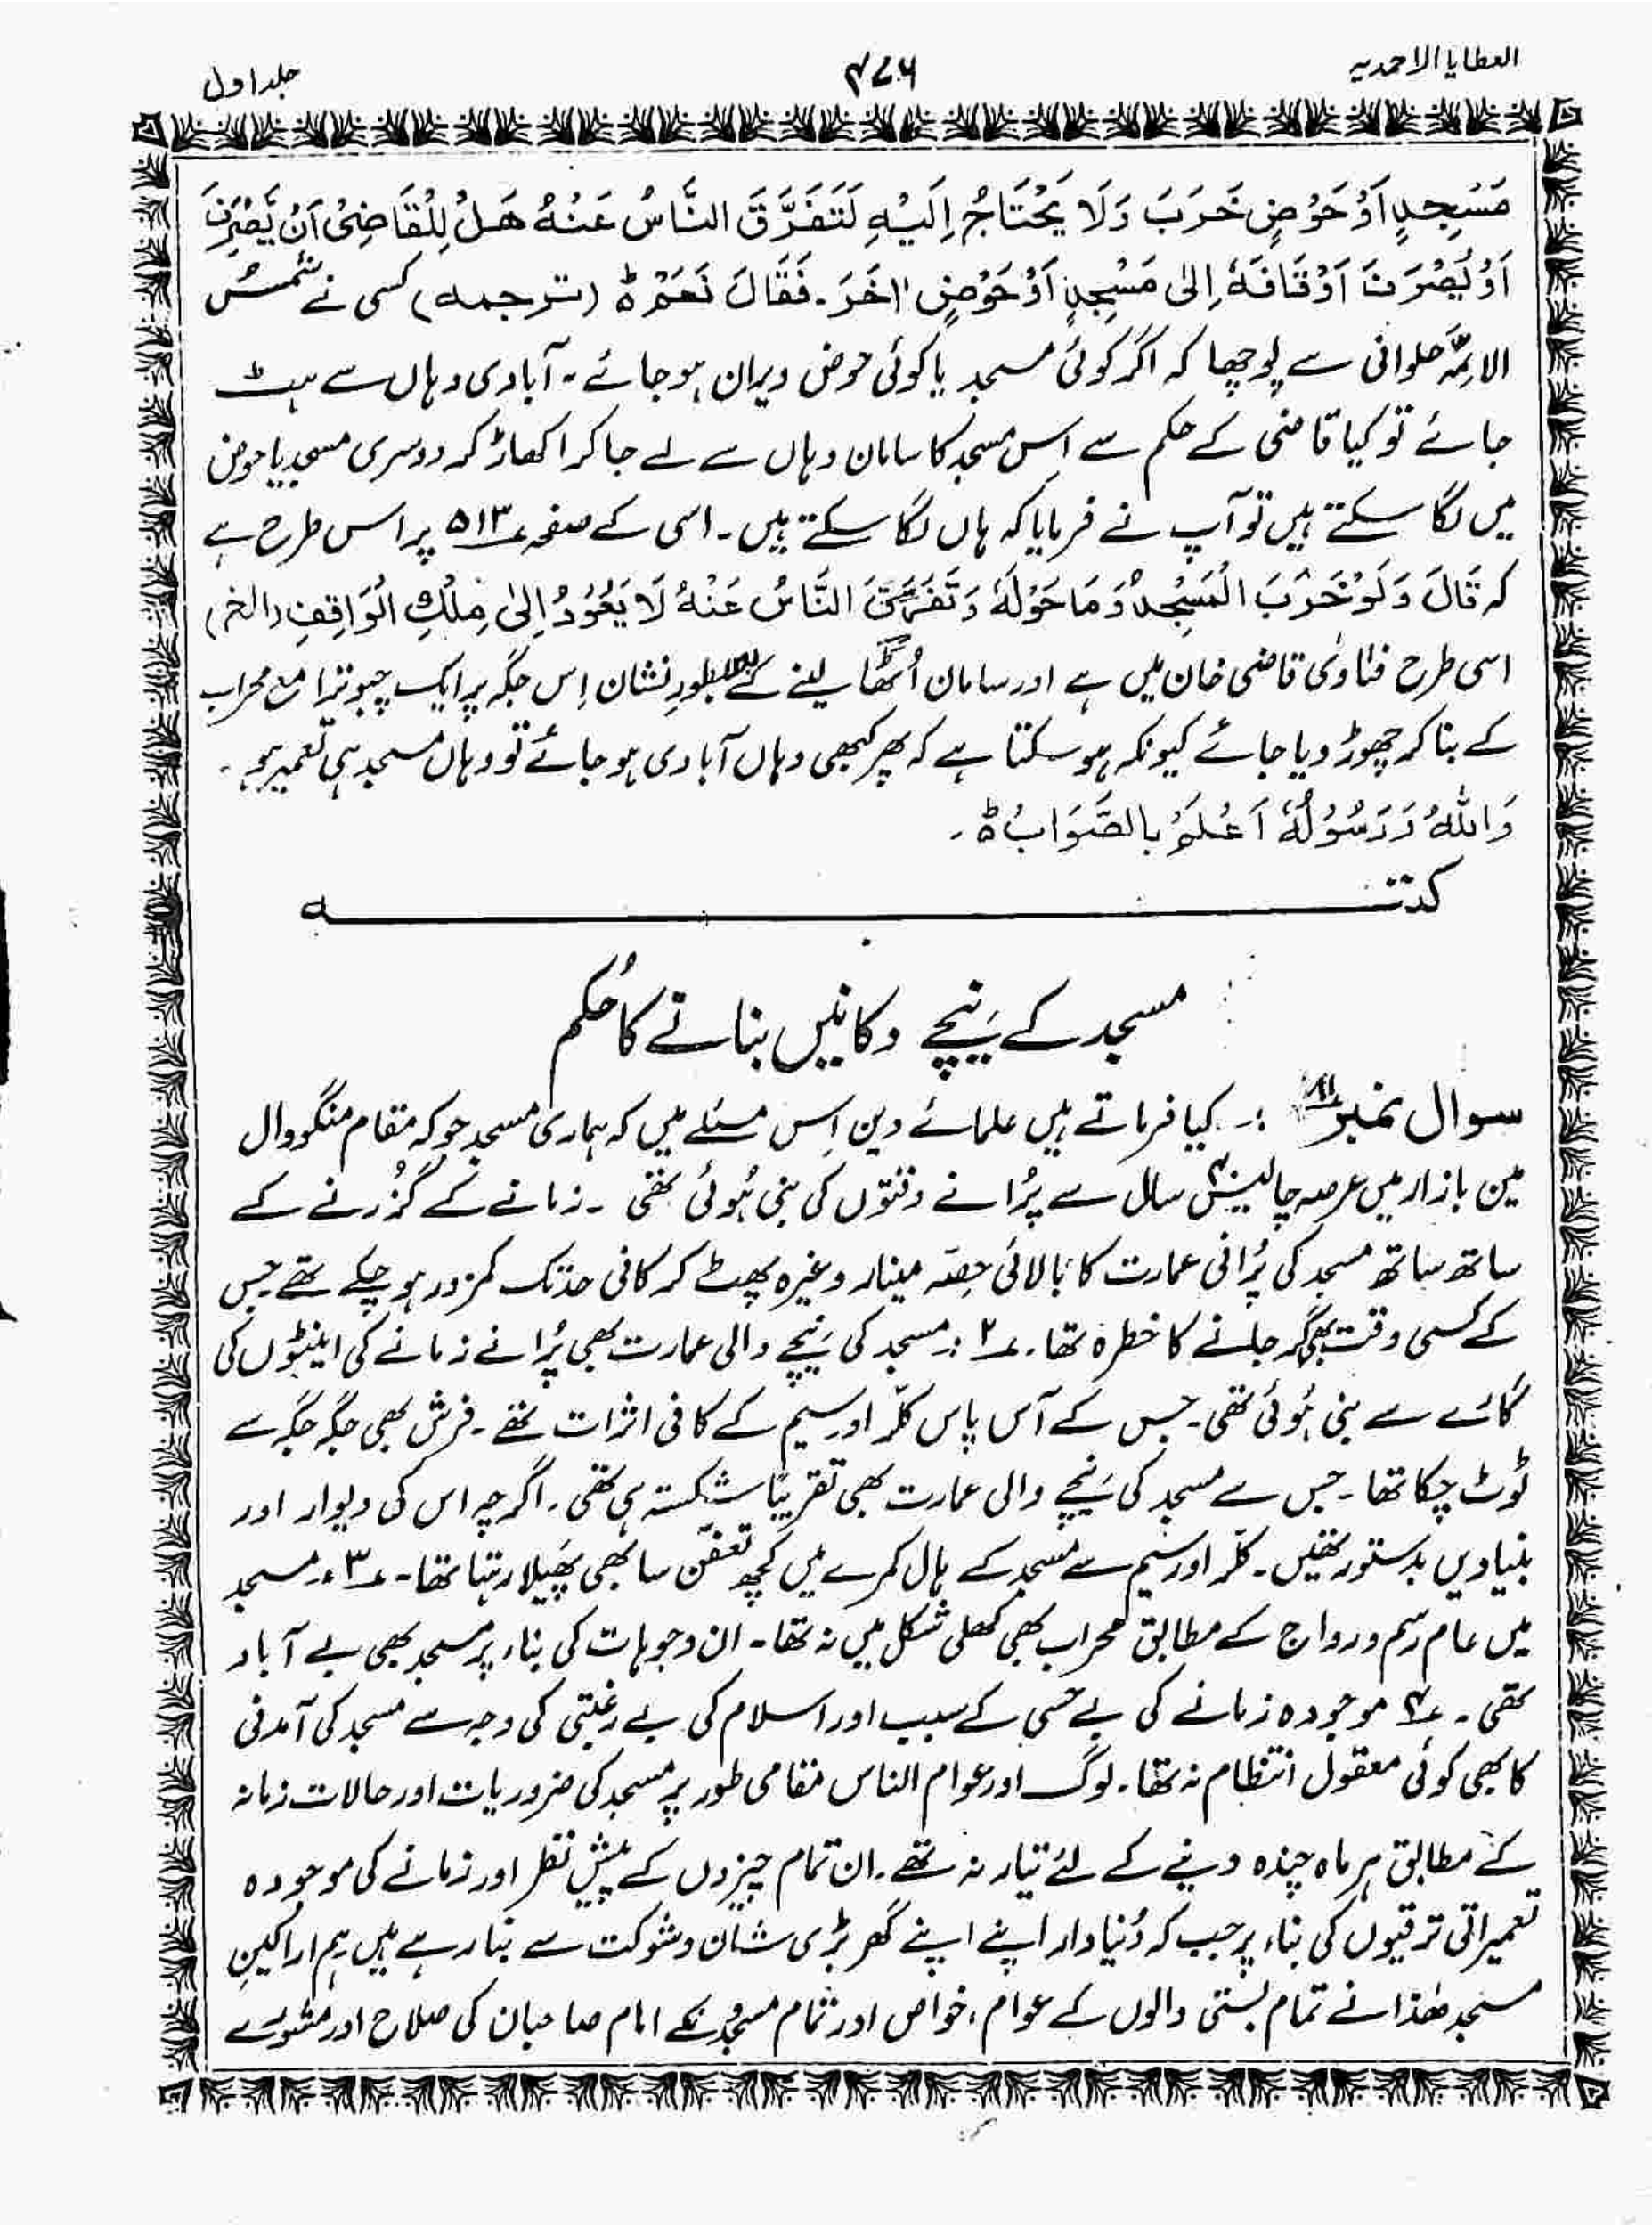 العطایا الاحمدیہ
۴۷۶
جلد اول
مَسْجِدٍ اَوْ حَوْضٍ خَرَبَ وَلَا یَحْتَاجُ اِلَیْہِ لَتَفَرَّقَ النَّاسُ عَنْہُ ھَلْ لِلْقَاضِیْ اَنْ یَّصْرِفَ
اَوْ یَصْرَفَ اَوْقَافَہٗ اِلٰی مَسْجِدٍ اَوْ حَوْضٍ اٰخَرَ۔ فَقَالَ نَعَمْ ہ (ترجمہ) کسی نے شمسُ
الائِمّہ حلوانی سے پوچھا کہ اگر کوئی مسجد یا کوئی حوض ویران ہو جائے۔ آبادی وہاں سے ہٹ
جائے تو کیا قاضی کے حکم سے اِس مسجد کا سامان وہاں سے لے جا کر اکھاڑ کر دوسری مسجد یا حوض
میں لگا سکتے ہیں تو آپ نے فرمایا کہ ہاں لگا سکتے ہیں۔ اسی کے صفحہ ؁۵۱۳ پر اس طرح ہے
کہ قَالَ وَلَوْ خَرَبَ الْمَسْجِدُ وَمَا حَوْلَہٗ وَتَفَرَّقَ النَّاسُ عَنْہُ لَا یَعُوْدُ اِلٰی مِلْکِ الْوَاقِفِ (الخ)
اسی طرح فتاوٰی قاضی خان میں ہے اور سامان اُٹھا لینے کے بعد بطورِ نشان اِس جگہ پر ایک چبوترا مع محراب
کے بنا کر چھوڑ دیا جائے کیونکہ ہو سکتا ہے کہ پھر کبھی وہاں آبادی ہو جائے تو وہاں مسجد ہی تعمیر ہو۔
وَاللّٰہُ وَرَسُوْلُہٗ اَعْلَمُ بِالصَّوَابُ ہ۔
کتبـــــــــہ
مسجد کے نیچے دکانیں بنانے کا حُکم
سوال نمبر ۸۱ :۔ کیا فرماتے ہیں علمائے دین اِس مسئلے میں کہ ہماری مسجد جو کہ مقام منگووال
مین بازار میں عرصہ چالیس ۴۰ سال سے پُرانے وقتوں کی بنی ہُوئی تھی ۔ زمانے کے گُزرنے کے
ساتھ ساتھ مسجد کی پُرانی عمارت کا بالائی حِصّہ مینار وغیرہ پھٹ کر کافی حد تک کمزور ہو چکے تھے جس
کے کسی وقت بھی گر جانے کا خطرہ تھا۔ ؁۲ :۔ مسجد کی نِیچے والی عمارت بھی پُرانے زمانے کی اینٹوں کی
گارے سے بنی ہُوئی تھی۔ جس کے آس پاس کلّر اور سیم کے کافی اثرات تھے۔ فرش بھی جگہ جگہ سے
ٹوٹ چکا تھا ۔ جس سے مسجد کی نِیچے والی عمارت بھی تقریبًا شکستہ ہی تھی ۔ اگرچہ اس کی دیوار اور
بنیادیں بدستور تھیں۔ کلّر اور سیم سے مسجد کے ہال کمرے میں کچھ تعفّن سا بھی پھَیلا رہتا تھا۔ ؁۳:۔ مسجد
میں عام رسم و رواج کے مطابق محراب بھی کھلی شکل میں نہ تھا۔ ان وجوہات کی بناء پر مسجد بھی بے آباد
تھی ۔ ؁۴ موجودہ زمانے کی بے حسی کے سبب اور اسلام کی بے رغبتی کی وجہ سے مسجد کی آمدنی
کا بھی کوئی معقول انتظام نہ تھا۔ لوگ اور عوام الناس مقامی طور پر مسجد کی ضروریات اور حالات زمانہ
کے مطابق ہر ماہ چندہ دینے کے لئے تیار نہ تھے۔ ان تمام چیزوں کے پیشِ نظر اور زمانے کی موجودہ
تعمیراتی ترقیوں کی بناء پر جب کہ دُنیا دار اپنے اپنے گھر بڑی شان و شوکت سے بنا رہے ہیں ہم اراکینِ
مسجد ھٰذا نے تمام بستی والوں کے عوام، خواص اور تمام مسجدوں کے امام صاحبان کی صلاح اور مشورے